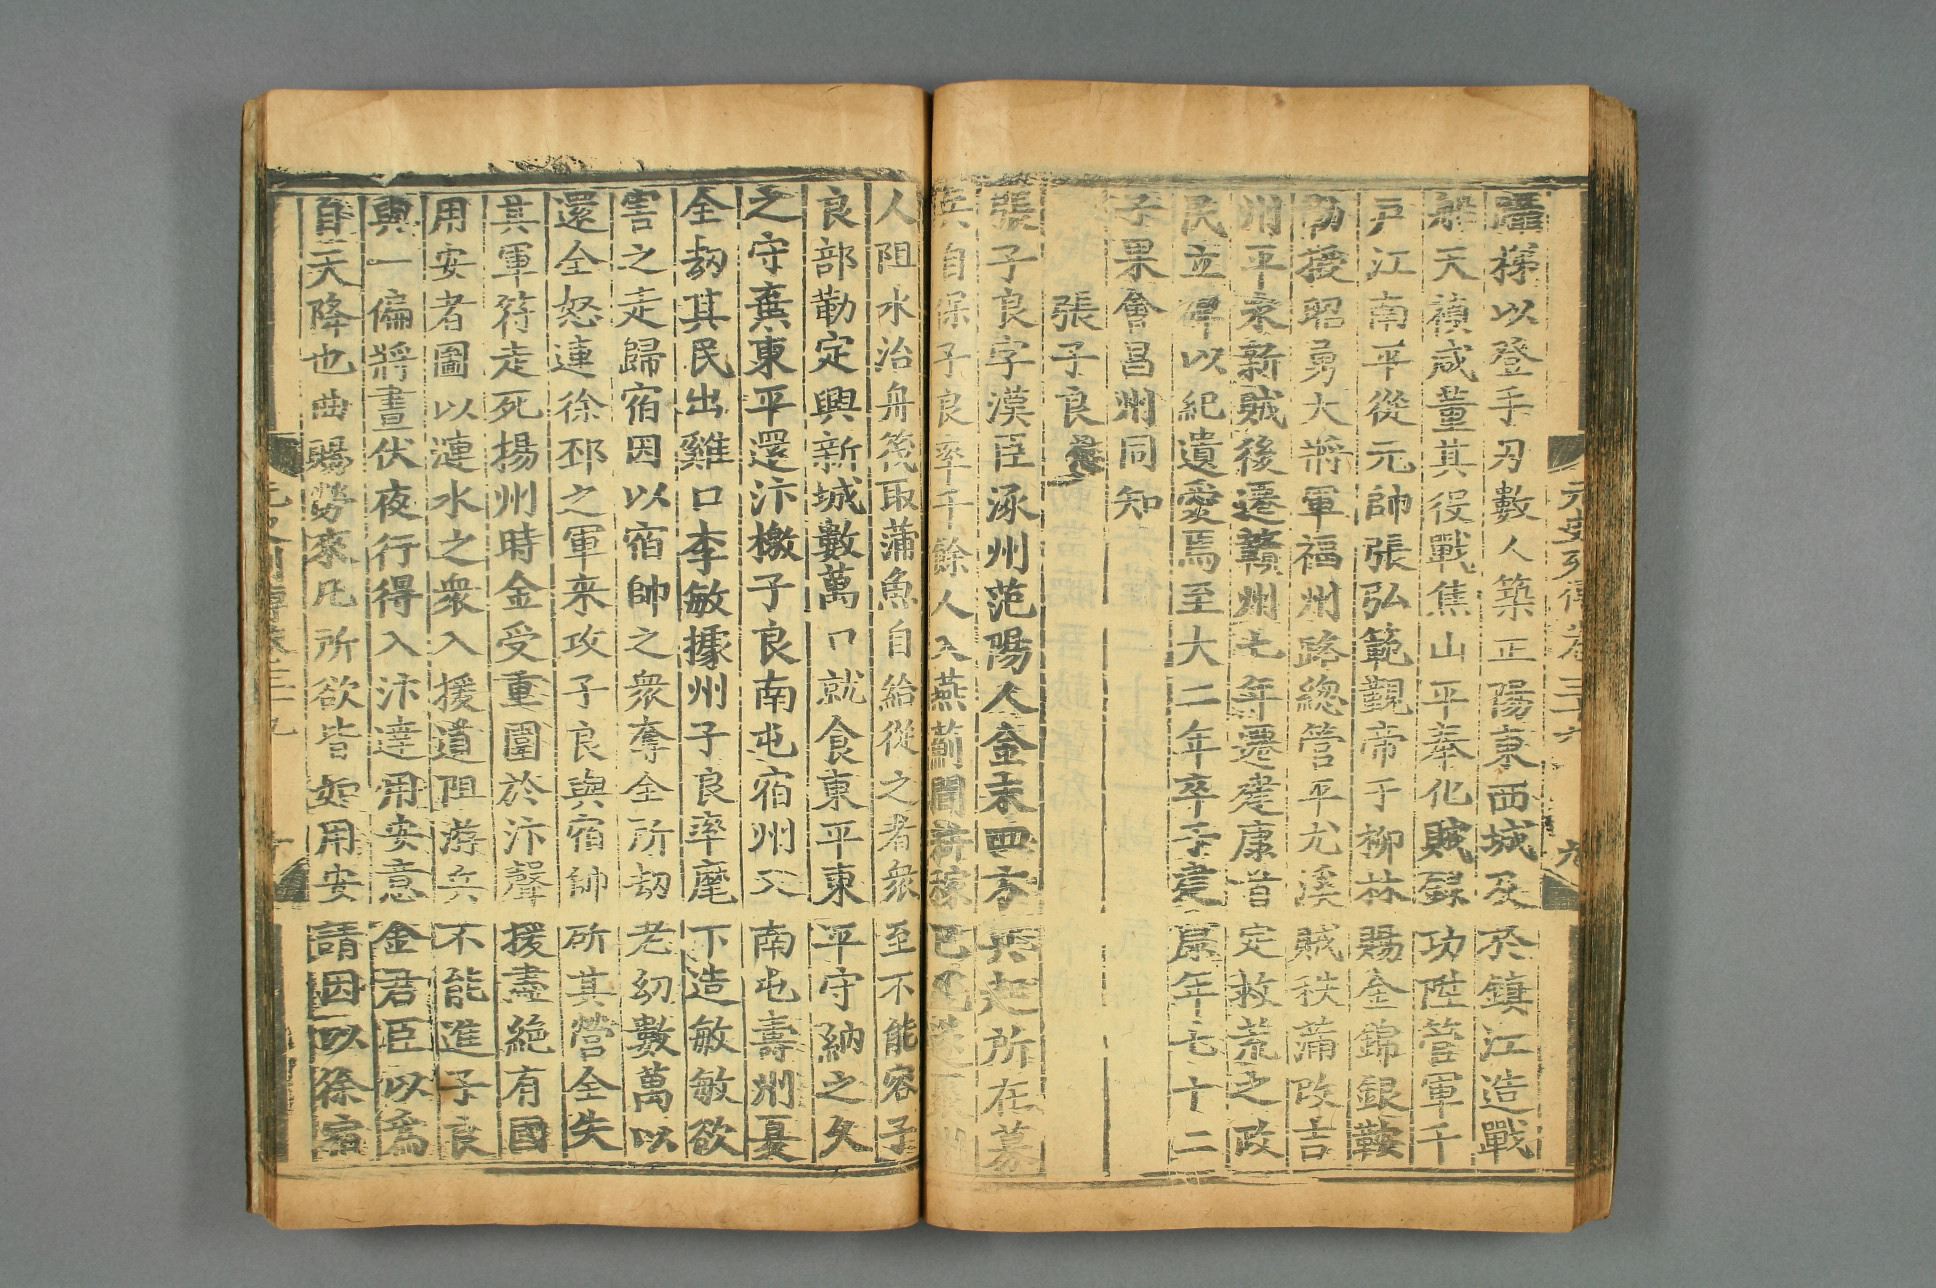 躡梯以登手刃數人築正陽東西城及於鎮江造戰
船天禎咸董其役戰焦山平奉化賊録功陞管軍千
戶江南平從元帥張弘範觀帝于柳林賜金錦銀鞍
勒授昭勇大將軍福州路總管平尤溪賊秩蒲改吉
州平永新賊後遷贛州七年遷建康首定救荒之政
民立碑以紀遺愛焉至大二年卒于建康年七十二
子果會昌州同知
張子良
張子良字漢臣涿州范陽人金末四方兵起所在募
兵自保子良率千餘人入燕薊間耕稼已
人阻水治舟筏取蒲魚自給從之者衆至不能容子
良部勒定興新城數萬口就食東平東平守納之久
之守棄東平還汴檄子良南屯宿州又南屯壽州夏
全刼其民出雞口李敏據州子良率麾下造敏敏欲
害之走歸宿因以宿帥之衆奪全所刼老幼數萬以
還全怒連徐邳之軍來攻子良與宿帥所其營全失
其軍符走死揚州時金受重圍於汴聲援盡絶有國
用安者圖以漣水之衆入援道阻游兵不能進子良
與一偏將晝伏夜行得入汴達用安意金君臣以爲
自天降也曲賜勞來凡所欲皆如用安請因以徐宿
元史列傳卷三十九